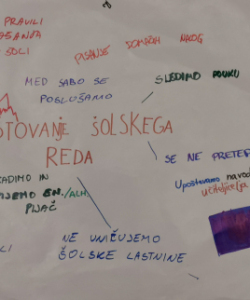 PRAVILI
ŠOLI
PISANJE DOMAČIH NALOG
MED SABO SE
POSLUŠAMO
SLEDIMO POUKU
OTOVANJE ŠOLSKEGA
REDA
SE NE PRETEP
KADIMO IN
JEMO EN./ALK.
PIJAČ
Upoštevamo navod
učitelja
NE UNIČUJEMO
ŠOLSKE LASTNINE